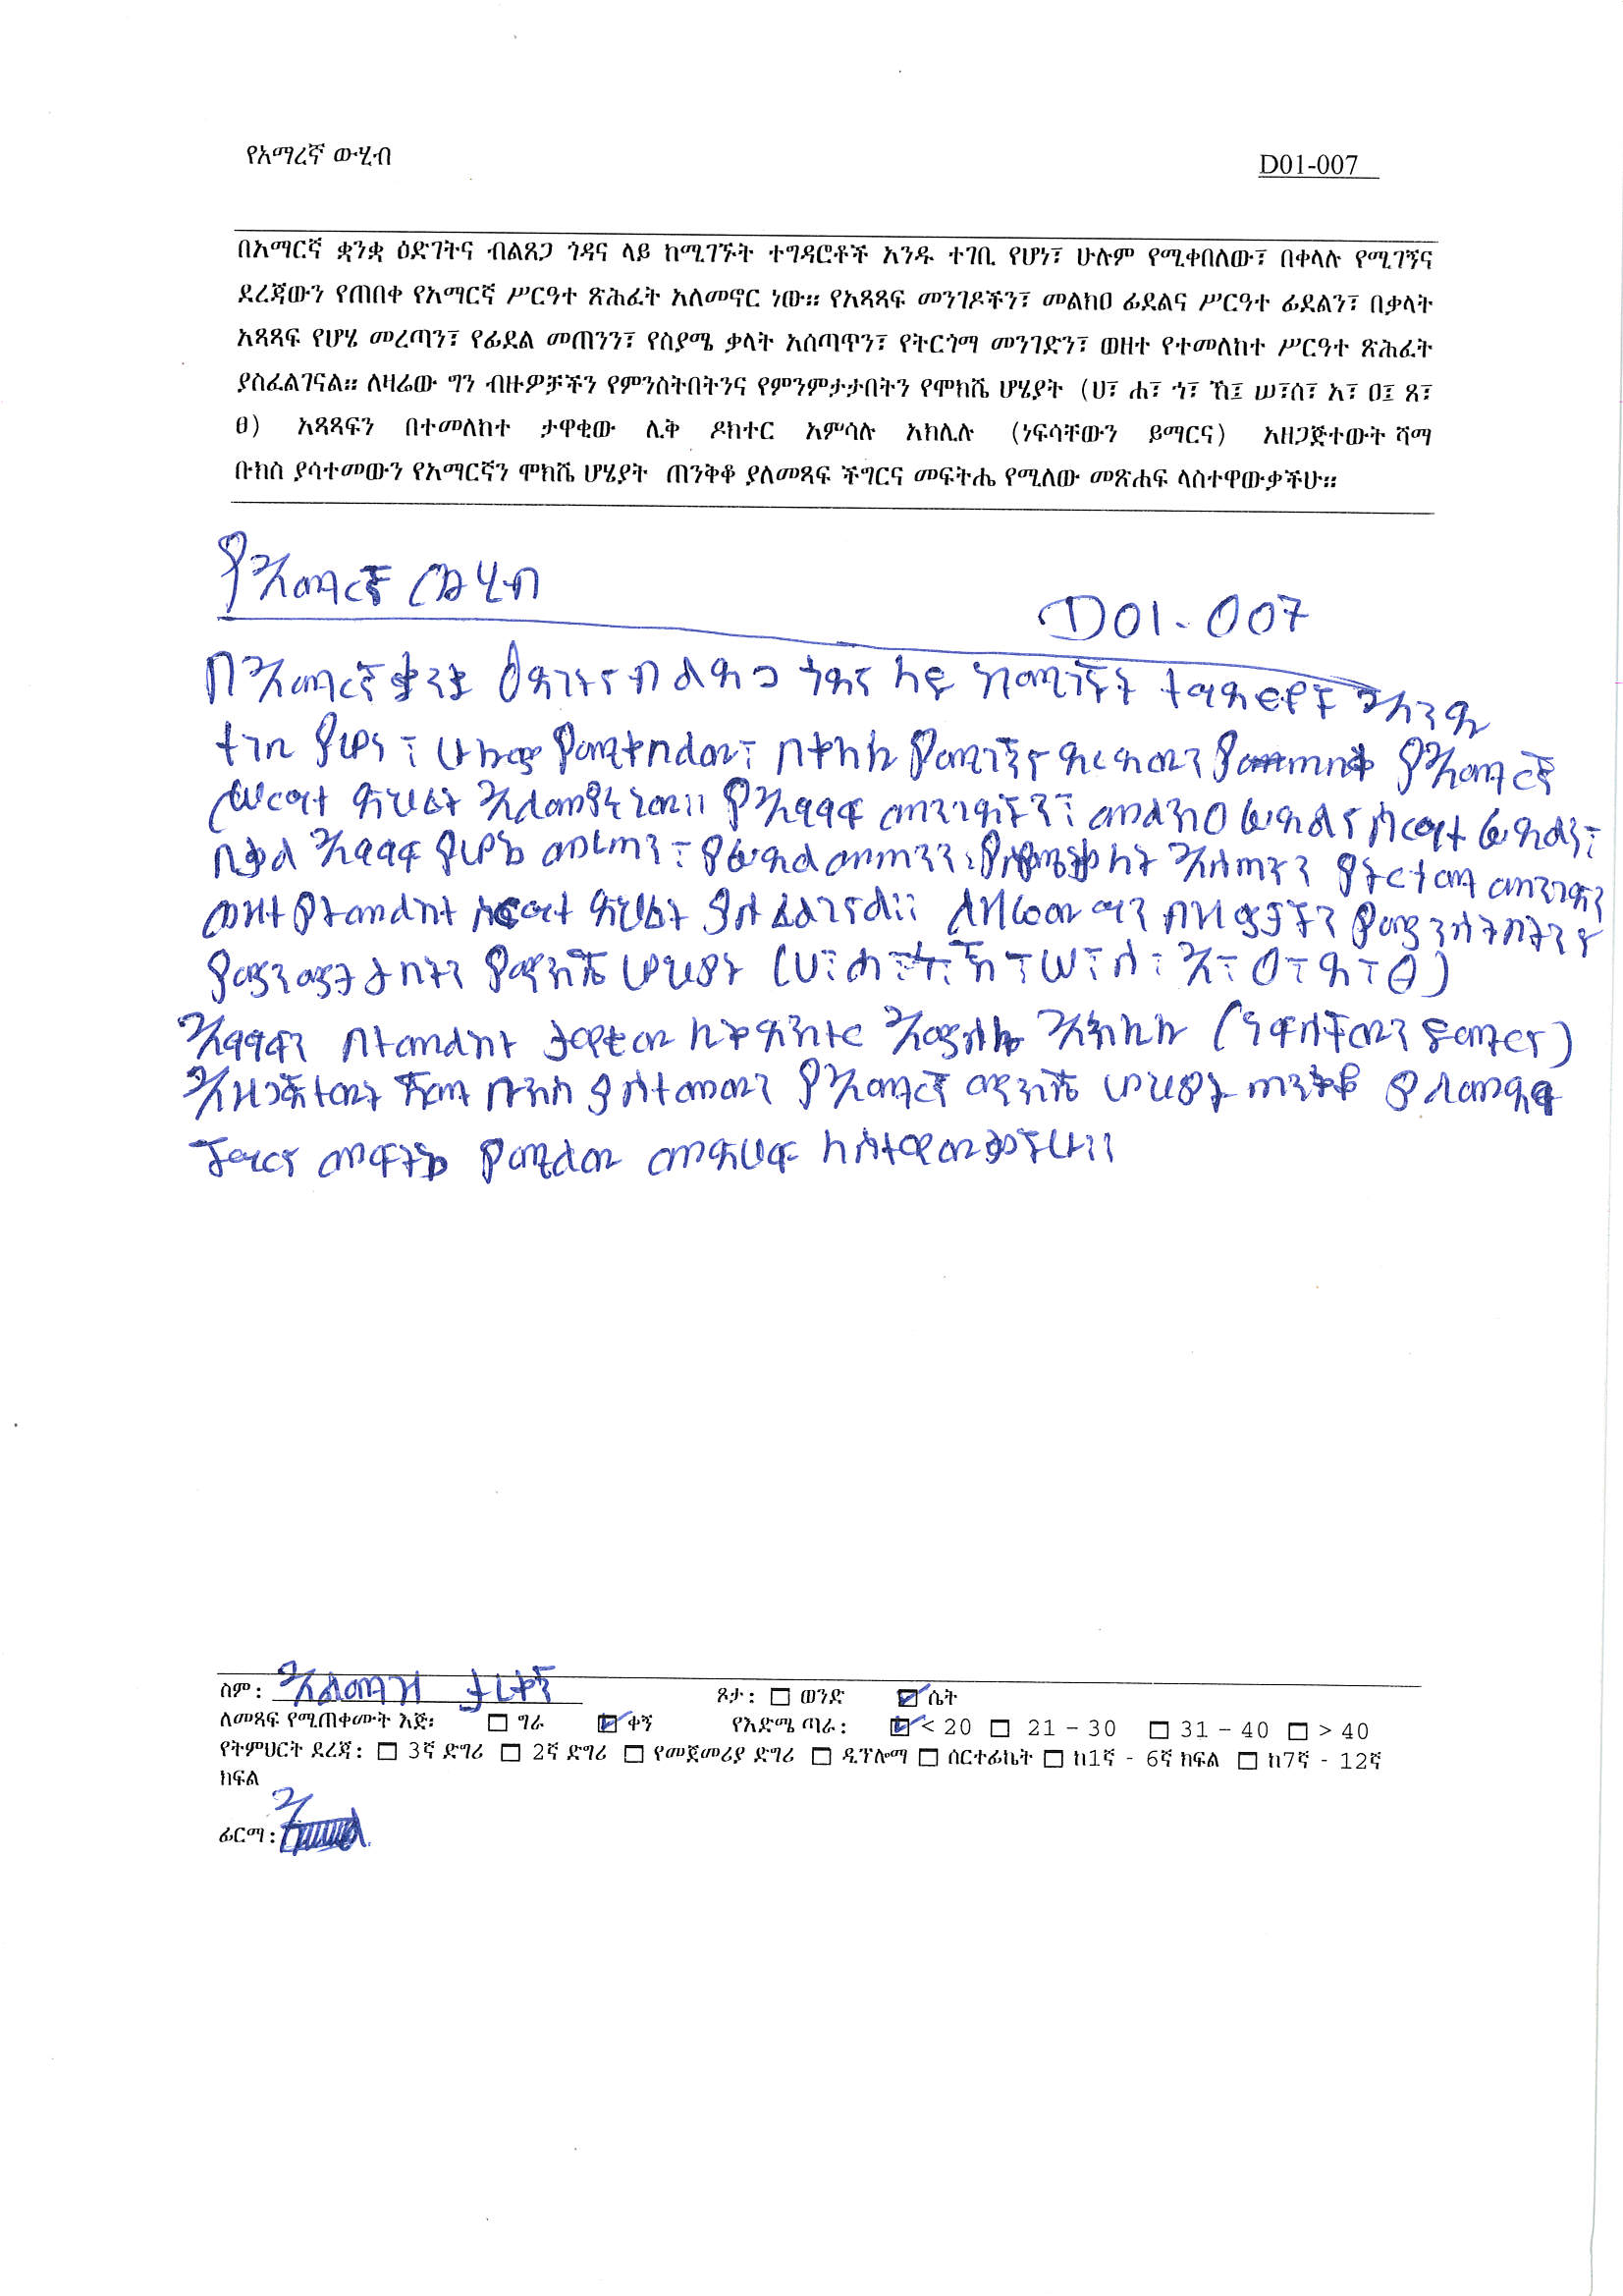 የአማረኛ ውሂብ
D01-007
በአማርኛ ቋንቋ ዕድገትና ብልጸጋ ጎዳና ላይ ከሚገኙት ተግዳሮቶች አንዱ ተገቢ የሆነ፣ ሁሉም የሚቀበለው፣ በቀላሉ የሚገኝና
ደረጃውን የጠበቀ የአማርኛ ሥርዓተ ጽሕፈት አለመኖር ነው። የአጻጻፍ መንገዶችን፣ መልክዐ ፊደልና ሥርዓተ ፊደልን፣ በቃላት
አጻጻፍ የሆሄ መረጣን፣ የፊደል መጠንን፣ የስያሜ ቃላት አሰጣጥን፣ የትርጎማ መንገድን፣ ወዘተ የተመለከተ ሥርዓተ ጽሕፈት
ያስፈልገናል። ለዛሬው ግን ብዙዎቻችን የምንስትበትንና የምንምታታበትን የሞክሼ ሆሄያት (ሀ፣ ሐ፣ ኀ፣ ኸ፤ ሠ፣ሰ፣ አ፣ ዐ፤ ጸ፣
ፀ) አጻጻፍን በተመለከተ ታዋቂው ሊቅ ዶክተር አምሳሉ አክሊሉ (ነፍሳቸውን ይማርና) አዘጋጅተውት ሻማ
ቡክስ ያሳተመውን የአማርኛን ሞክሼ ሆሄያት ጠንቅቆ ያለመጻፍ ችግርና መፍትሔ የሚለው መጽሐፍ ላስተዋውቃችሁ።
የአማርኛ ውሂብ
D01-007
በአማርኛ ቋንቋ ዕድገትና ብልጸጋ ጎዳና ላይ ከሚገኙት ተግዳሮቶች አንዱ
ተገቢ የሆነ ፣ ሁሉም የሚቀበለው፣ በቀላሉ የሚገኝና ደረጃውን የጠበቀ የአማርኛ
ሥርዓተ ጽሕፈት አለመኖር ነው። የአጻጻፍ መንገዶችን፣ መልክዐ ፊደልና ሥርዓተ ፊደልን፣
አጻጻፍ የሆሄ መረጣን፣ የፊደል መጠንን፣ አሰጣጥን የትርጎማ መንገድን
ወዘተ የተመለከተ ሥርዓተ ጽሕፈት ያስፈልገናል። ለዛሬው ግን ብዙዎቻችን የምንስትበትንና
የምንምታታበትን የሞክሼ ሆሄያት (ሀ፣ ሐ፣ ኀ፣ ኸ፣ ሠ፣ ሰ፣ አ፣ ዐ፣ ጸ፣ ፀ)
አጻጻፍን በተመለከተ ታዋቂው ሊቅ አምሳሉ አክሊሉ (ነፍሳቸውን ይማርና)
አዘጋጅተውት ሻማ ቡክስ ያሳተመውን የአማርኛ ሞክሼ ሆሄያት ጠንቅቆ ያለመጻፍ
ችግርና መፍትሔ የሚለው መጽሀፍ ላስተዋውቃችሁ።
ስም: አልማዝ ታረቀኝ ጾታ: ☐ ወንድ ☑ ሴት
ለመጻፍ የሚጠቀሙት እጅ፡ ☐ ግራ ☑ ቀኝ የእድሜ ጣራ: ☑ < 20 ☐ 21 – 30 ☐ 31 – 40 ☐ > 40
የትምህርት ደረጃ: ☐ 3ኛ ድግሪ ☐ 2ኛ ድግሪ ☐ የመጀመሪያ ድግሪ ☐ ዲፕሎማ ☐ ሰርተፊኬት ☐ ከ1ኛ - 6ኛ ክፍል ☐ ከ7ኛ - 12ኛ
ክፍል
ፊርማ: